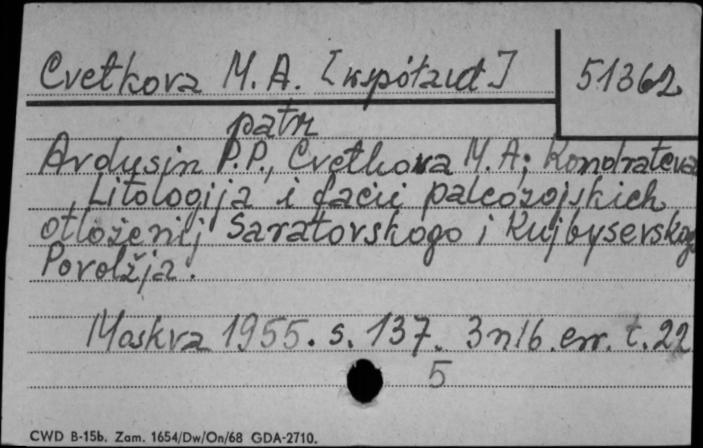 Cvetkova M. A. [współaut] 51362
patrz
Avdusin P.P., Cvetkova M. A; Kondrateva
Litologija i facii paleozojskich
otloženij Saratovskogo i Kujbyševskogo
Povolžja.
Moskva 1955. s. 137. 3 nlb. err. t. 22
5
CWD B-15b. Zam. 1654/Dw/On/68 GDA-2710.